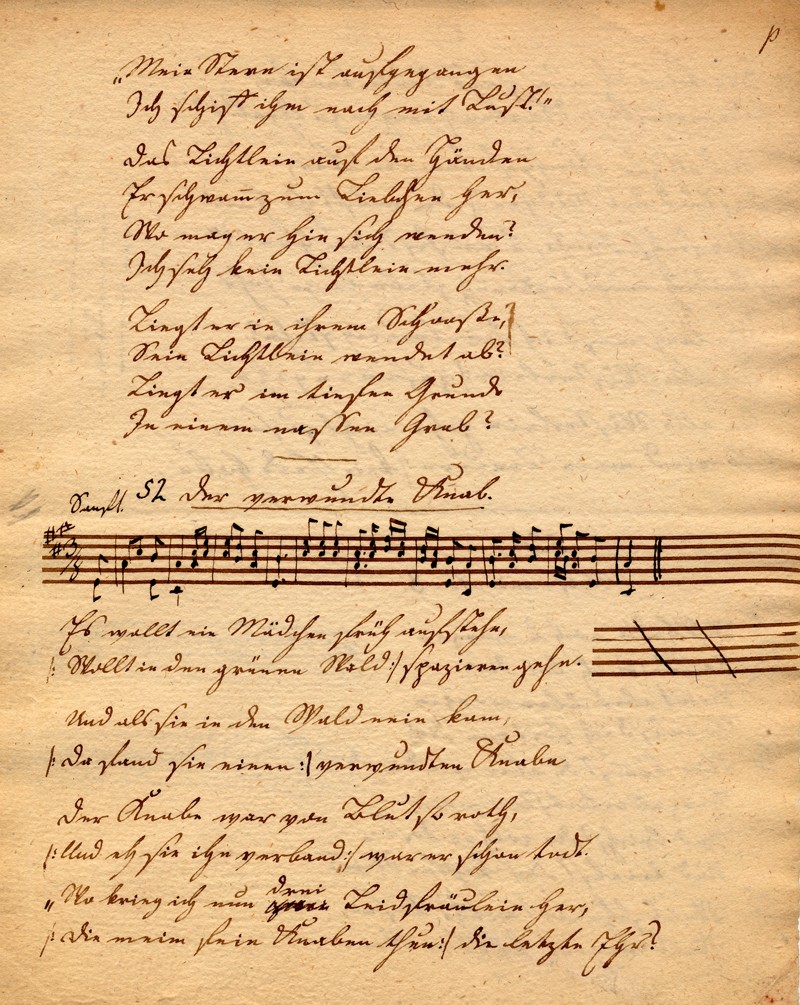 „Mein Stern ist aufgegangen
Ich schiff ihm nach mit Lust!"
Das Lichtlein auf den Händen
Er schwam̅ zum Liebchen her,
Wo mag er hin sich wenden?
Ich seh kein Lichtlein mehr.
Liegt er in ihrem Schooße,
Sein Lichtlein wendet ab?
Liegt er im tiefen Grunde
In einem nassen Grab?
Sanft. 52 Der verwundte Knab.
Es wollt ein Mädchen früh aufstehn,
|: Wollt in den grünen Wald :| spazieren gehn.
Und als sie in den Wald nein kam,
|: Da fand sie einen :| verwundten Knaben
Der Knabe war von Blut so roth,
|: Und eh sie ihn verband :| war er schon todt.
drei
„Wo krieg ich nun Leidfräulein her,
|: Die meim fein Knaben thun :| die letzte Ehr?